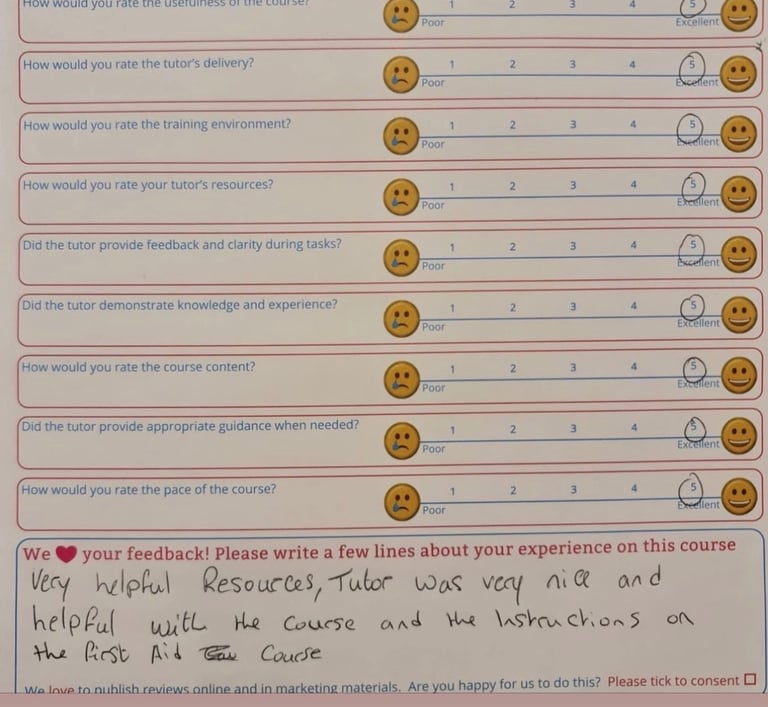 How would you rate the usefulness of the course? 1 2 3 4 5
Poor Excellent
How would you rate the tutor's delivery? 1 2 3 4 5
Poor Excellent
How would you rate the training environment? 1 2 3 4 5
Poor Excellent
How would you rate your tutor's resources? 1 2 3 4 5
Poor Excellent
Did the tutor provide feedback and clarity during tasks? 1 2 3 4 5
Poor Excellent
Did the tutor demonstrate knowledge and experience? 1 2 3 4 5
Poor Excellent
How would you rate the course content? 1 2 3 4 5
Poor Excellent
Did the tutor provide appropriate guidance when needed? 1 2 3 4 5
Poor Excellent
How would you rate the pace of the course? 1 2 3 4 5
Poor Excellent
We ❤ your feedback! Please write a few lines about your experience on this course
Very helpful Resources, Tutor was very nice and
helpful with the course and the Instructions on
the first Aid Course
We love to publish reviews online and in marketing materials. Are you happy for us to do this? Please tick to consent ☐